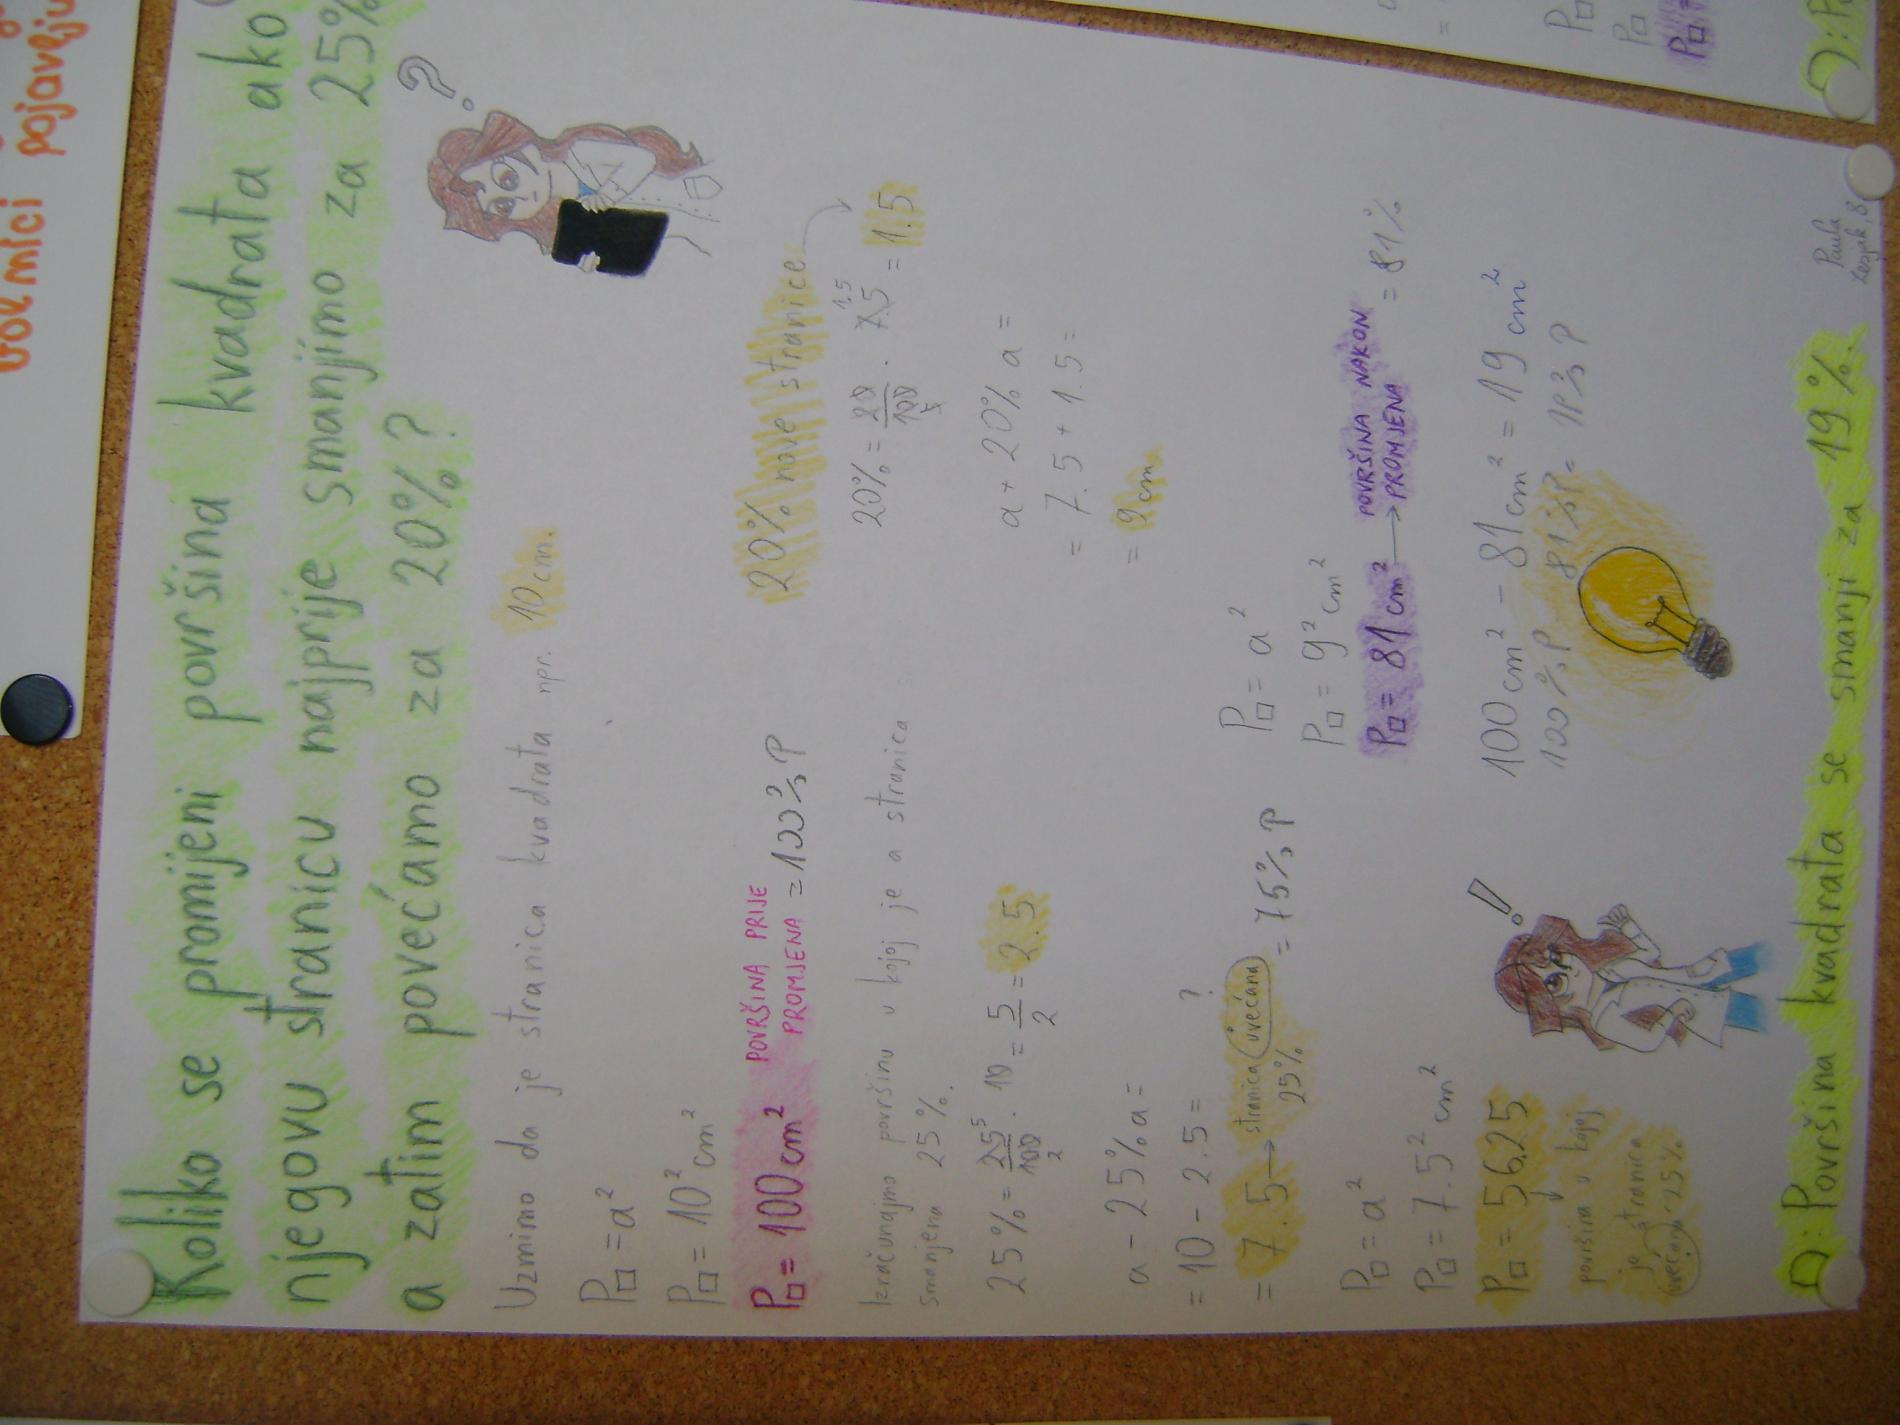 Koliko se promijeni površina kvadrata ako
njegovu stranicu najprije smanjimo za 25%
a zatim povećamo za 20%?
Uzmimo da je stranica kvadrata npr. 10 cm.
P□ = a²
P□ = 10² cm²
P□ = 100 cm² POVRŠINA PRIJE
PROMJENA = 100% P
Izračunajmo površinu u kojoj je a stranica
smanjena 25%.
25% = 25/100 · 10 = 5/2 = 2.5
a - 25% a =
= 10 - 2.5 =
= 7.5 → stranica uvećana ?
25% = 75% P
P□ = a²
P□ = 7.5² cm²
P□ = 56.25
površina u kojoj
je stranica
uvećana 25%
20% nove stranice
20% = 20/100 · 7.5 = 1.5
a + 20% a =
= 7.5 + 1.5 =
= 9 cm
P□ = a²
P□ = 9² cm²
P□ = 81 cm² → POVRŠINA NAKON
PROMJENA = 81%
100 cm² - 81 cm² = 19 cm²
100% P - 81% P = 19% P
O: Površina kvadrata se smanji za 19%.
Paula
pojaveju